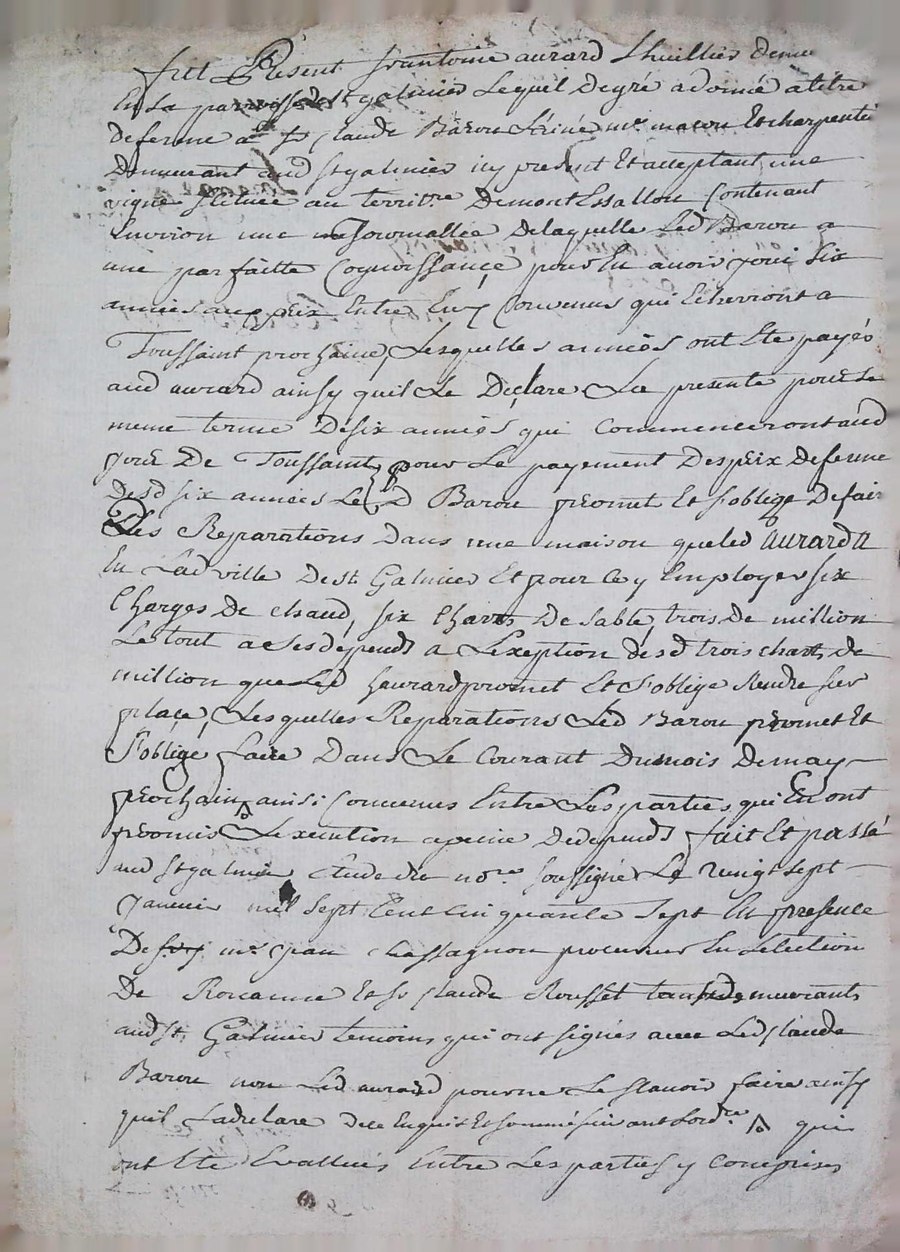 fut Présent Sr antoine aurard Lhuillier demt
En La parroisse de St galmier Lequel de gré a donné a titre
de ferme a Sr Claude Barou me macon Et charpentié
Demeurant aud St galmier icy present Et acceptant une
vigne scituée au territre De mont Essallon Contenant
Environ une Journallée De laquelle Led Barou a
une parfaitte Cognoissance pour En avoir joui six
années au prix Entre Eux Convenus qui Echevront a
Toussaint prochaine, Lesquelles années ont Ete payés
aud aurard ainsy quil Le Declare La presente pour Le
meme terme De six années qui Commenceront aud
jour De Toussaint, pour Le payement Des prix De ferme
Desd six années Led Barou promet Et s'oblige De fair
Les Reparations Dans une maison que led Aurard a
En Lad ville De St Galmier Et pour ce y Employer six
Charges De chaud, six Charts De sable, trois De million
Le tout a ses depends a L'exeption desd trois charts de
million que Led haurard promet Et s'oblige Rendre sur
place, Lesquelles Reparations Led Barou promet Et
s'oblige faire Dans Le Courant Du mois De may
prochain, ainsi Convenus Entre Les parties qui En ont
promis L'execution a peine De depends fait Et passé
aud St galmier Etude du nore soussigné Le vingt sept
Janvier mil sept Cent cinquante sept En presence
De me Jean Chassagnon procureur En Lelection
De Roanne Et Sr Claude Rousset tous demeurants
aud St Galmier temoins qui ont signés avec Led Claude
Barou non Led aurard pour ne Le scavoir faire ainsy
quil La declare de ce Enquis Et sommé suivant Lordce qui
ont Ete Evallués Entre Les parties y Comprises